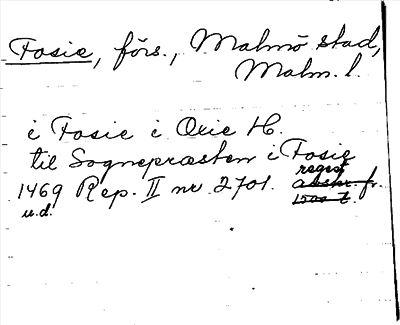 Fosie, förs., Malmö stad,
Malm. l.
i Fosie i Oxie H.
til Sognepræsten i Fosie
1469 Rep. II nr 2701. regest
u.d. abskr. fr.
1500 t.